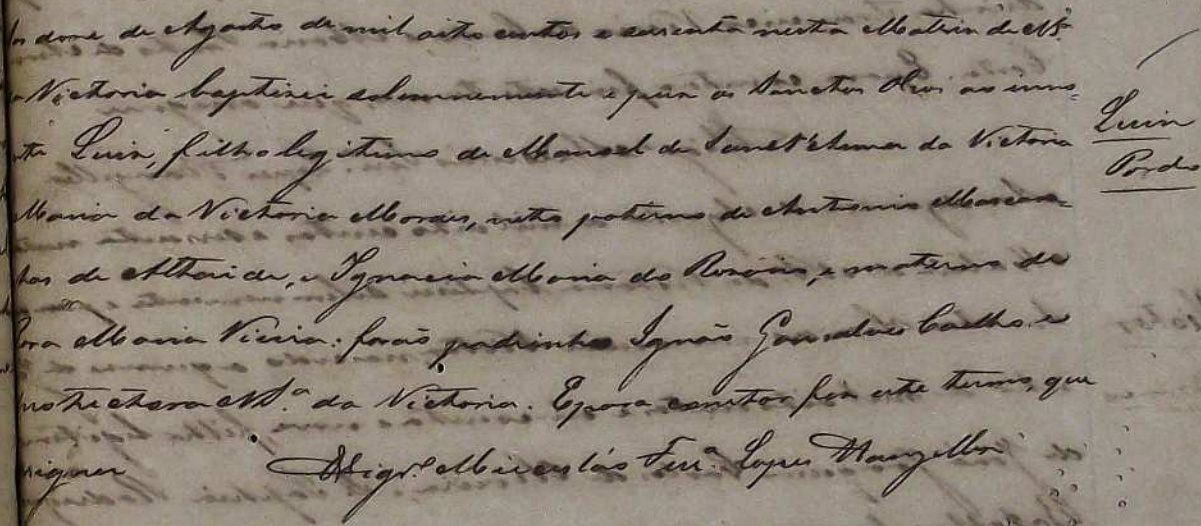 doze de Agosto de mil oito centos e secenta nesta Matriz de N. Sª
Victoria baptizei solemnemente e puz os Sanctos Oleos ao inno=
te Luiz, filho legitimo de Manoel de Sanct'Anna da Victoria
Maria da Victoria Moraes, neto paterno de Antonio Mascare=
has de Athaide, e Ignacia Maria do Rosario, e materno de
Maria Vieira. forão padrinhos Ignão Gonsalves Coelho e
Nª. da Victoria. E para constar fiz este termo, que
signei Vigrº
Luiz
Pardo